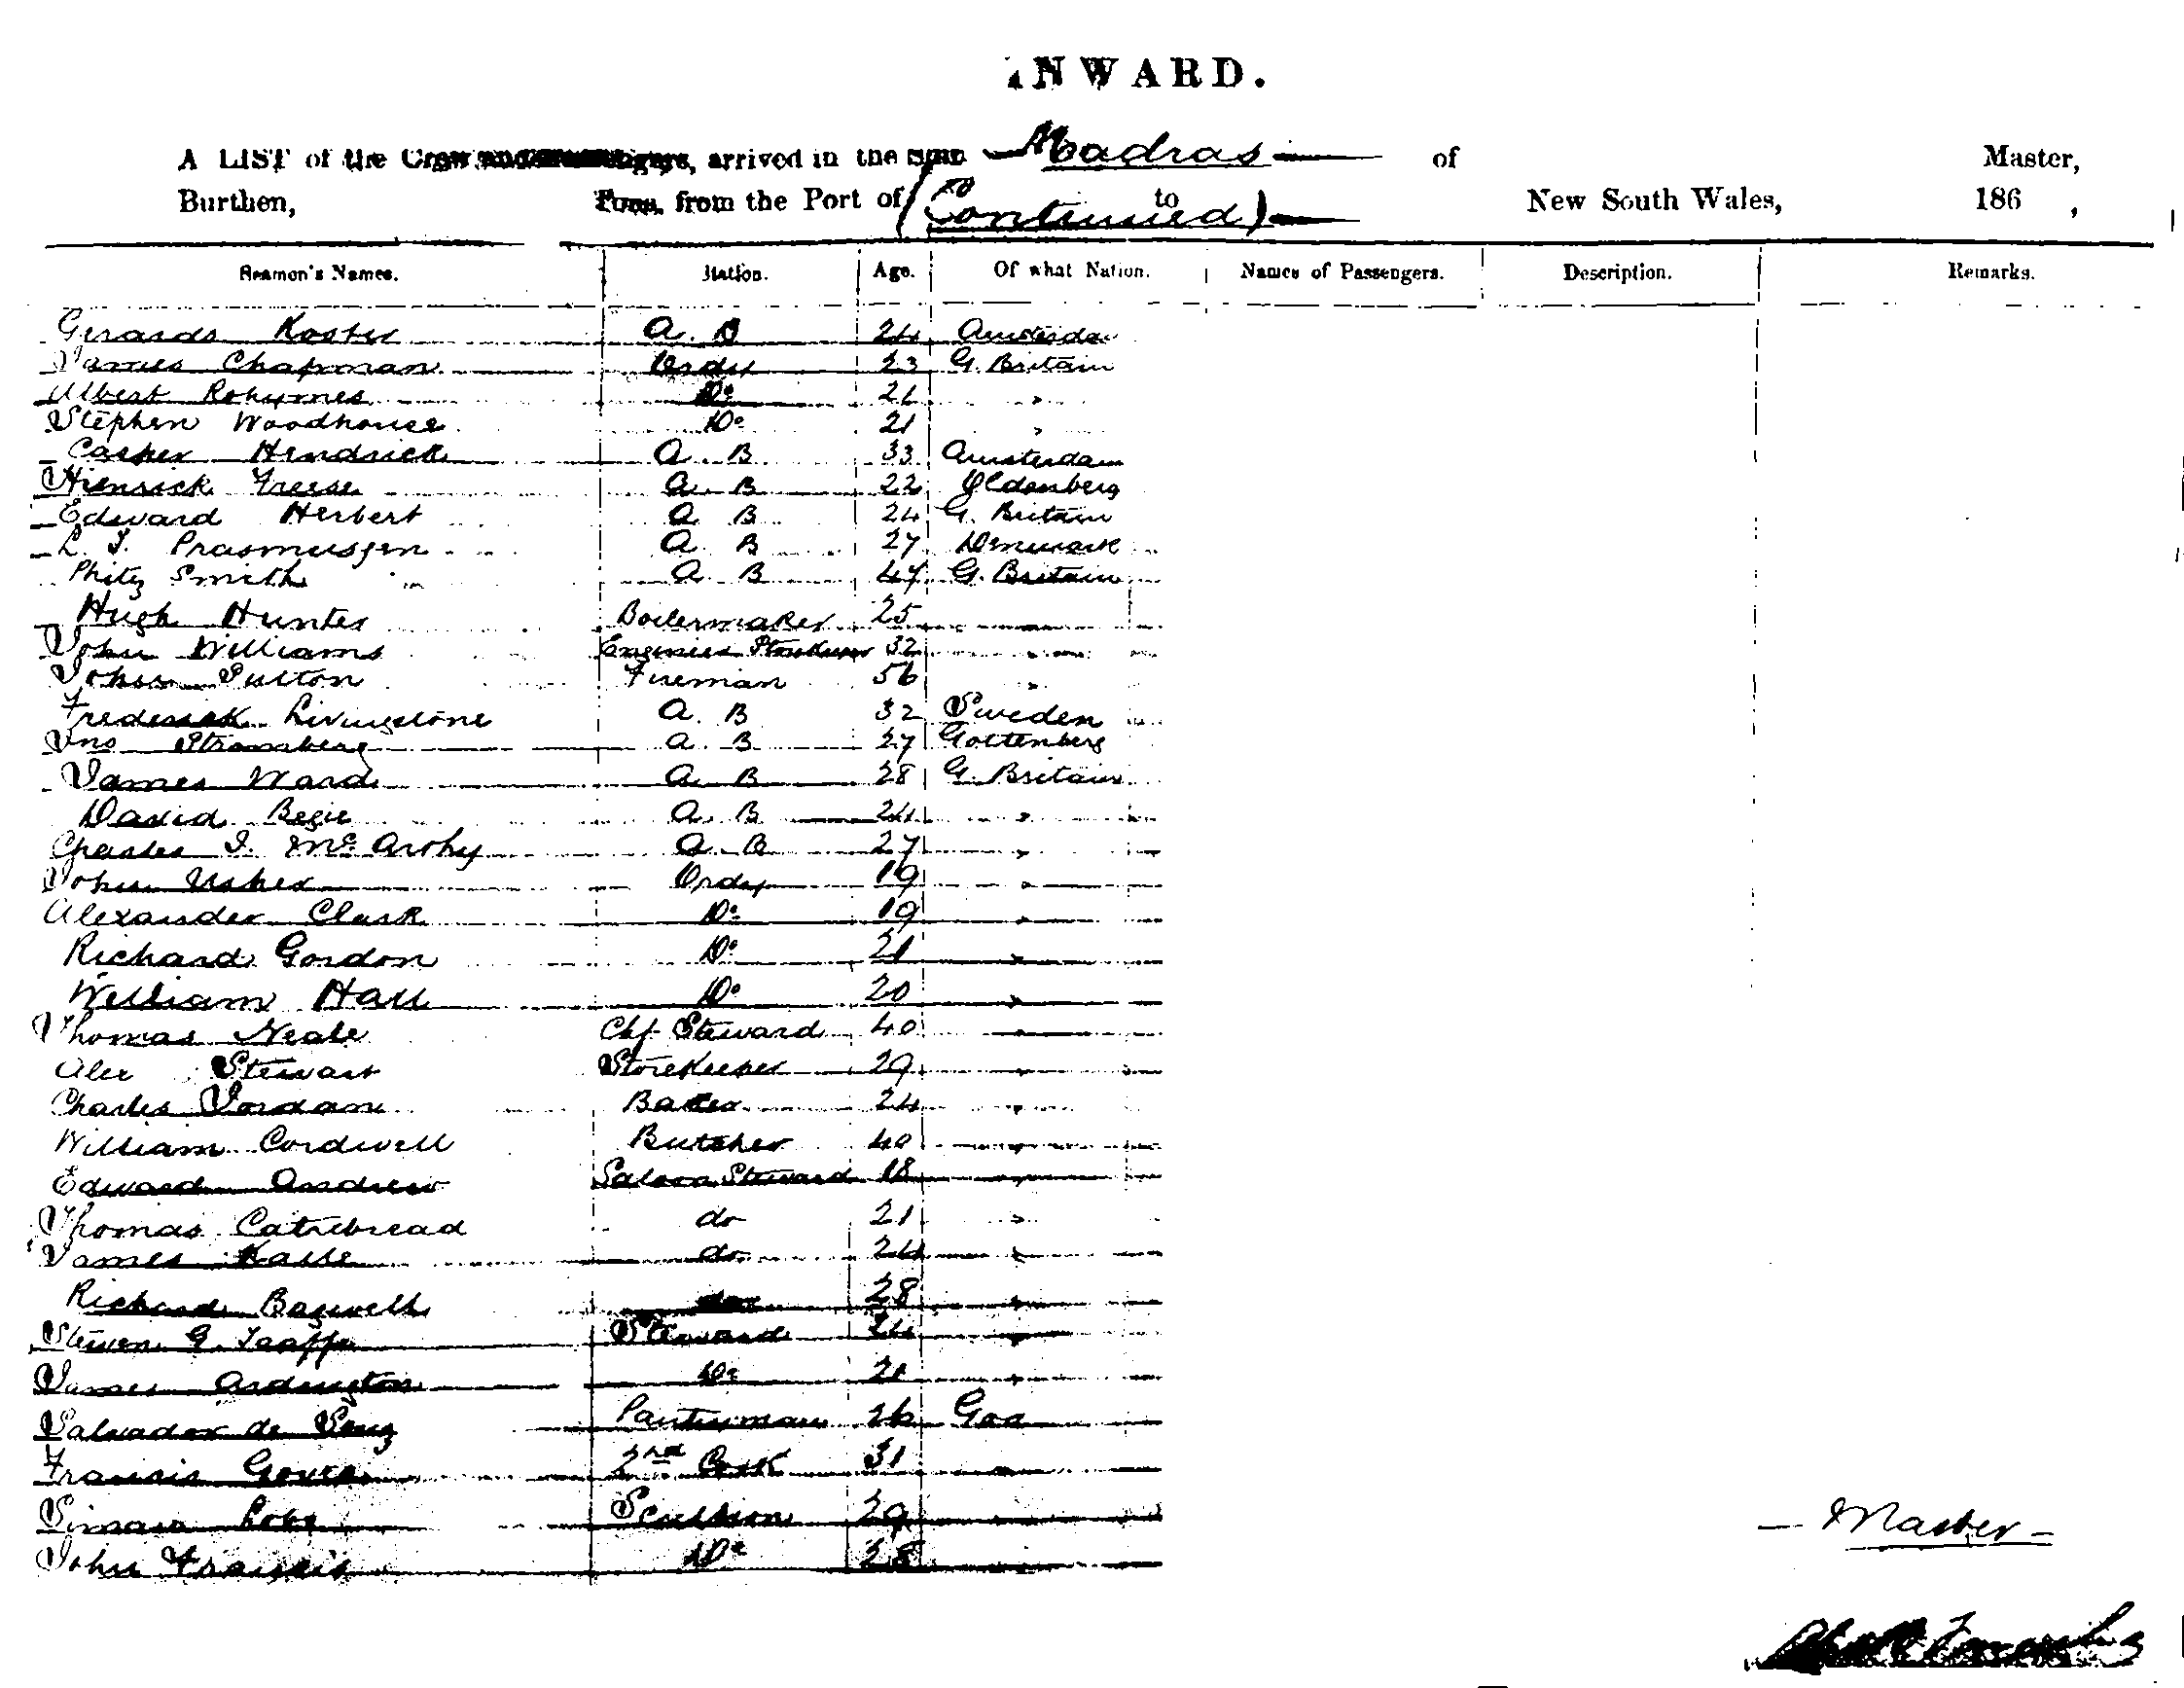 INWARD.
A LIST of the Crew and Passengers, arrived in the Ship Madras of Master,
Burthen, Tons, from the Port of (Continued) to New South Wales, 186 ,
Seamen's Names. Station. Age. Of what Nation. Names of Passengers. Description. Remarks.
Gerards Koster A. B 24 Amsterdam
James Chapman Ordy 23 G. Britain
Albert Do 21 "
Stephen Woodhouse Do 21 "
Casper Hendrick A. B 33 Amsterdam
Hienrick Greese A. B 22 Oldenberg
Edward Herbert A B 24 G. Britain
L. J. Prasmussen A B 27 Denmark
Smith A B 47 G. Britain
Hugh Hunter Boilermaker 25 "
John Williams Engineers Storekeeper 32 "
John Sutton Fireman 56 "
Frederick Livingstone A. B 32 Sweden
Jno Stromberg A. B 27 Gottenberg
James Ward A B 28 G. Britain
David Begie A. B 24 "
Charles J. McArthy A. B 27 "
John Usher Ordy 19 "
Alexander Clark Do 19 "
Richard Gordon Do 21 "
William Hall Do 20 "
Thomas Neale Chf Steward 40 "
Alex Stewart Storekeeper 29 "
Charles Jordan Baker 24 "
William Cordwell Butcher 40 "
Edward Andrew Saloon Steward 18 "
Thomas Catchbread do 21 "
James do 24 "
Richard Bagwell do 28 "
Steven G. Taaffe Steward 24 "
James Ardington Do 21 "
Salvador de Souz Pantryman 26 Goa
Francis 2nd Cook 31 "
Lobo Scullion 29 "
John Francis Do 28 "
Master